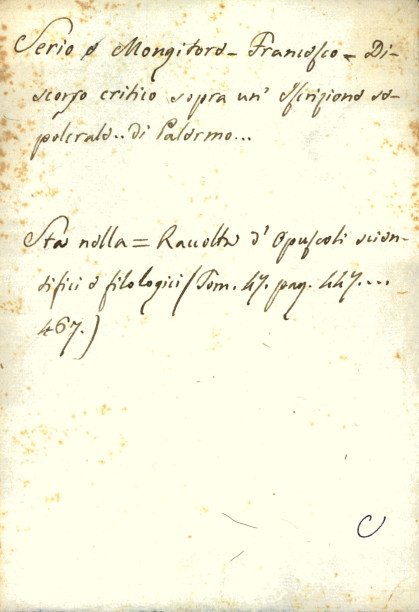 Serio e Mongitore - Francesco - Di-
scorso critico sopra un' Iscrizione se-
polcrale.. di Palermo...
Sta nella = Raccolta d' Opuscoli scien-
tifici e filologici (Tom. 47. pag. 447....
467.)
C